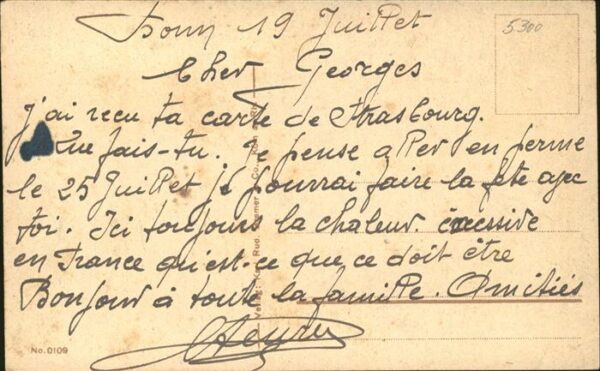 Bonn 19 Juillet
5300
Cher Georges
J'ai recu ta carte de Strasbourg.
Que fais-tu. Je pense aller en perme
le 25 Juillet je pourrai faire la fête avec
toi. Ici toujours la chaleur excessive
en France qu'est-ce que ce doit être
Bonjour à toute la famille. Amitiés
No. 0109